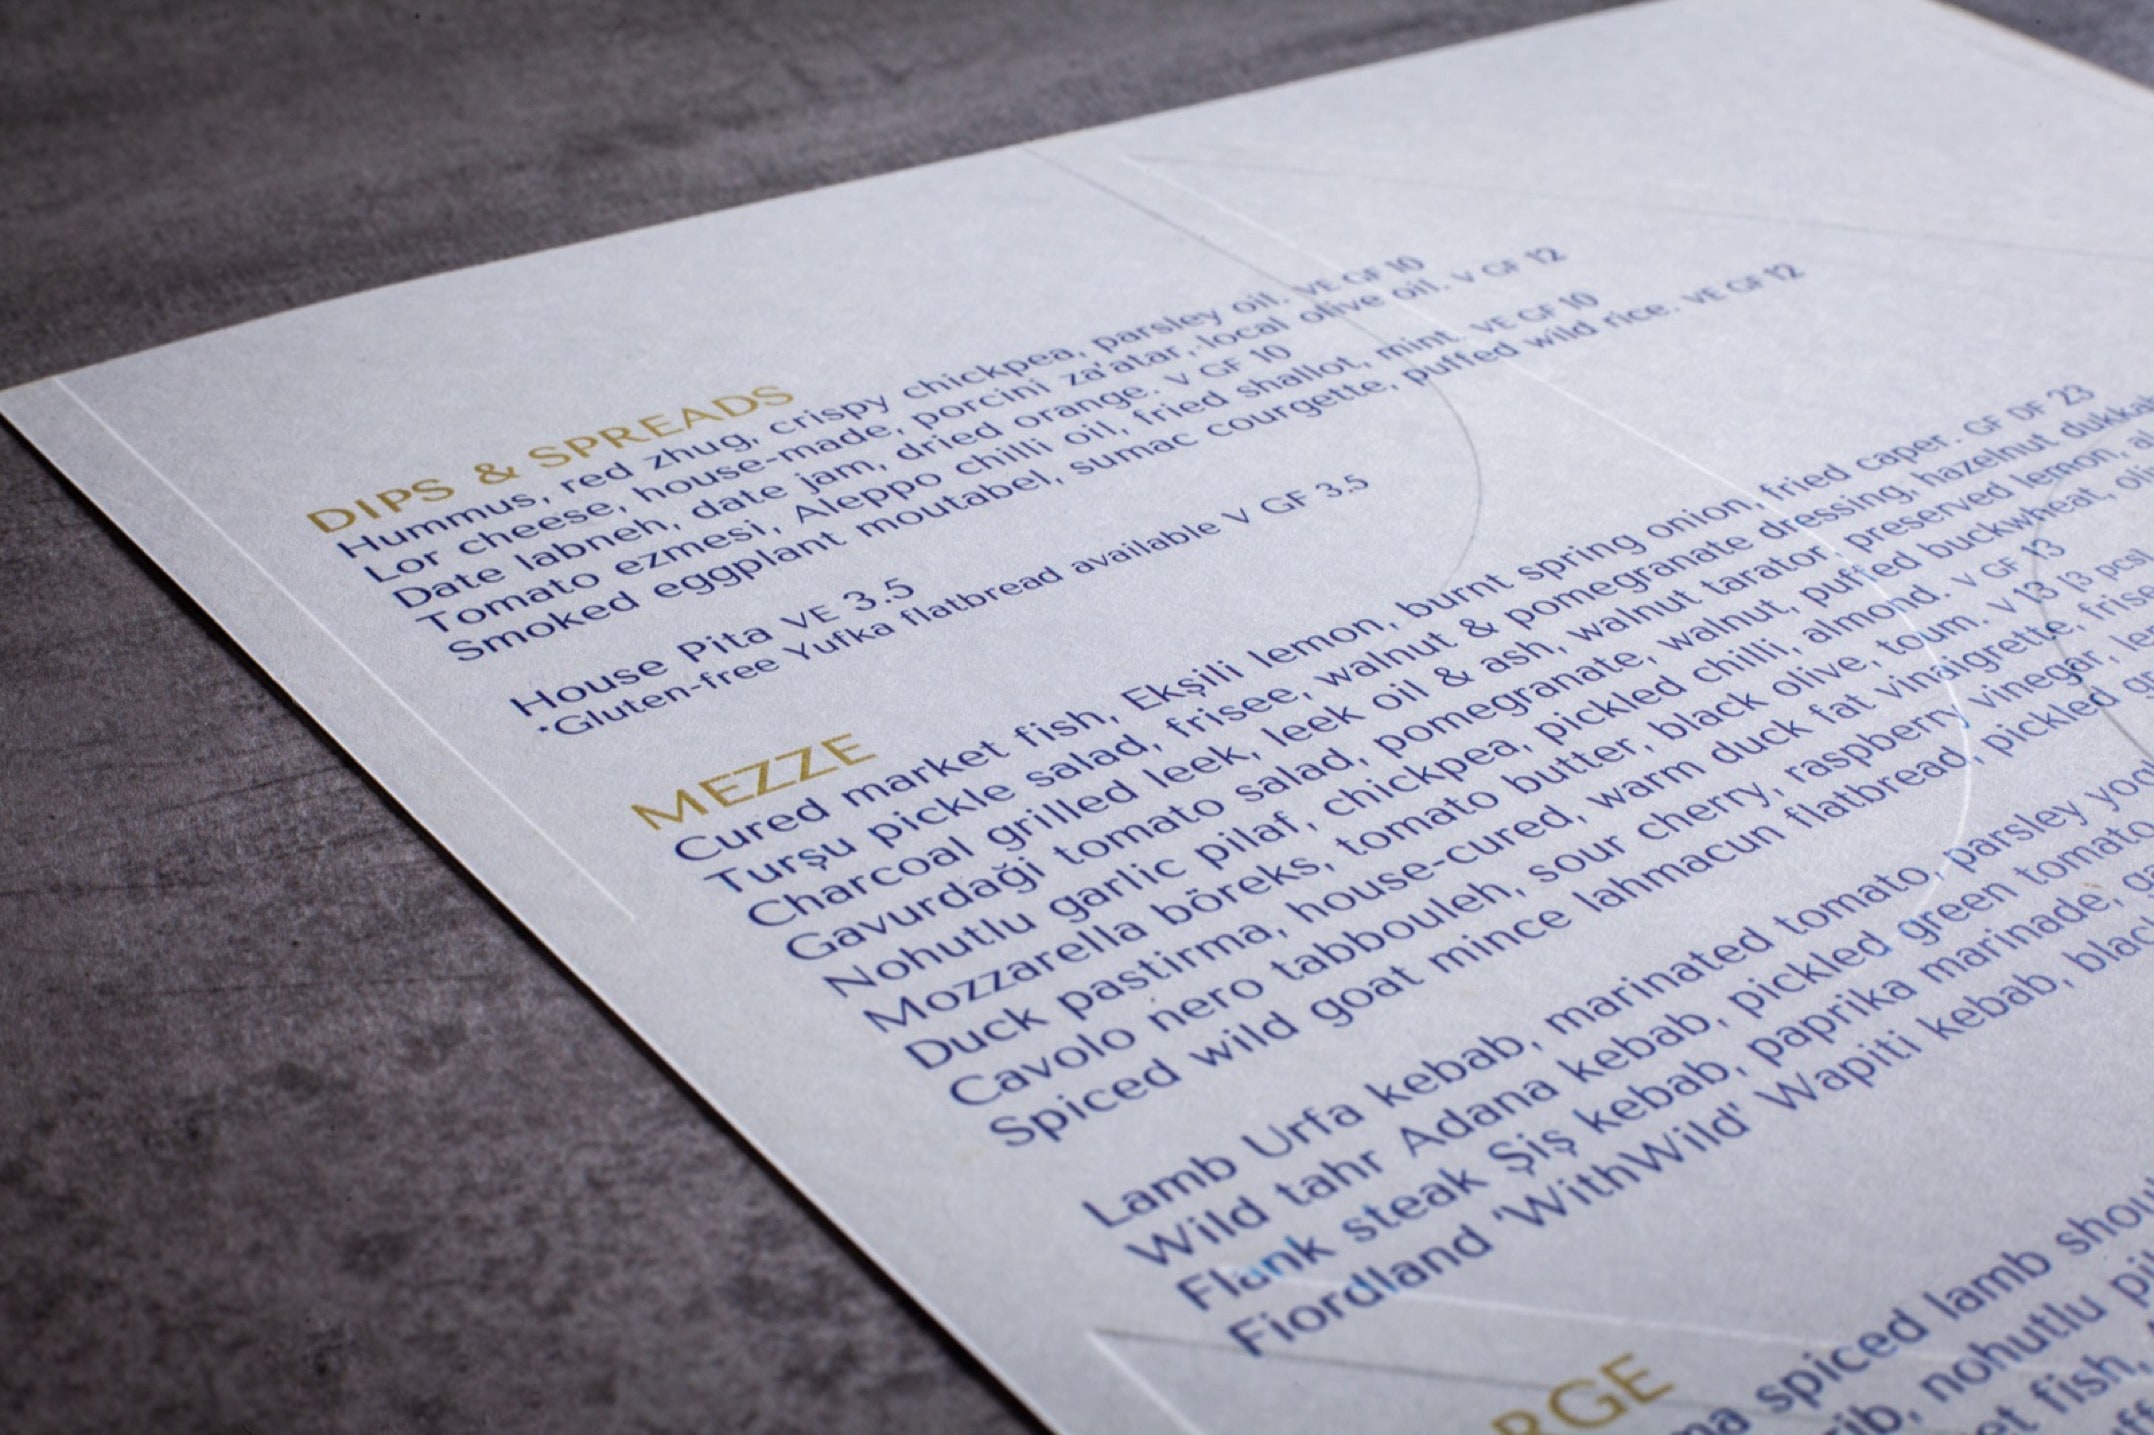 DIPS & SPREADS
Hummus, red zhug, crispy chickpea, parsley oil. VE GF 10
Lor cheese, house-made, porcini za'atar, local olive oil. V GF 12
Date labneh, date jam, dried orange. V GF 10
Tomato ezmesi, Aleppo chilli oil, fried shallot, mint. VE GF 10
Smoked eggplant moutabel, sumac courgette, puffed wild rice. VE GF 12
House Pita VE 3.5
*Gluten-free Yufka flatbread available V GF 3.5
MEZZE
Cured market fish, Ekşili lemon, burnt spring onion, fried caper. GF DF 23
Turşu pickle salad, frisee, walnut & pomegranate dressing, hazelnut
Charcoal grilled leek, leek oil & ash, walnut tarator, preserved lemon,
Gavurdaği tomato salad, pomegranate, walnut, puffed buckwheat,
Nohutlu garlic pilaf, chickpea, pickled chilli, almond. V GF 13
Mozzarella böreks, tomato butter, black olive, toum. V 13 [3 pcs]
Duck pastirma, house-cured, warm duck fat vinaigrette,
Cavolo nero tabbouleh, sour cherry, raspberry vinegar,
Spiced wild goat mince lahmacun flatbread, pickled
Lamb Urfa kebab, marinated tomato, parsley
Wild tahr Adana kebab, pickled green tomato
Flank steak Şiş kebab, paprika marinade,
Fiordland 'WithWild' Wapiti kebab,
RGE
spiced lamb
rib, nohutlu
fish,